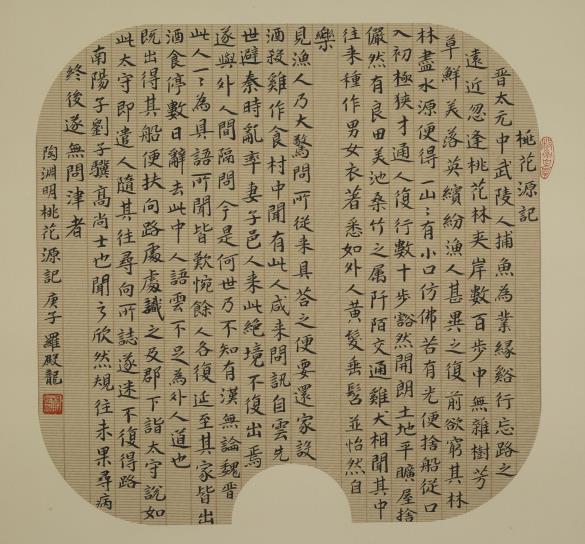 桃花源記
晉太元中武陵人捕魚為業緣谿行忘路之
遠近忽逢桃花林夾岸數百步中無雜樹芳
草鮮美落英繽紛漁人甚異之復前欲窮其林
林盡水源便得一山〻有小口仿佛若有光便捨船從口
入初極狹才通人復行數十步豁然開朗土地平曠屋捨
儼然有良田美池桑竹之属阡陌交通雞犬相聞其中
往来種作男女衣著悉如外人黃髮垂髫並怡然自
樂
見漁人乃大驚問所從来具答之便要還家設
酒殺雞作食村中聞有此人咸来問訊自雲先
世避秦時亂率妻子邑人来此絕境不復出焉
遂與外人間隔問今是何世乃不知有漢無論魏晉
此人一〻為具語所聞皆歎惋餘人各復延至其家皆出
酒食停數日辭去此中人語雲不足為外人道也
既出得其船便扶向路處處識之及郡下詣太守說如
此太守即遣人隨其往尋向所誌遂迷不復得路
南陽子劉子驥高尚士也聞之欣然規往未果尋病
終後遂無問津者
陶淵明桃花源記 庚子 羅殿龍